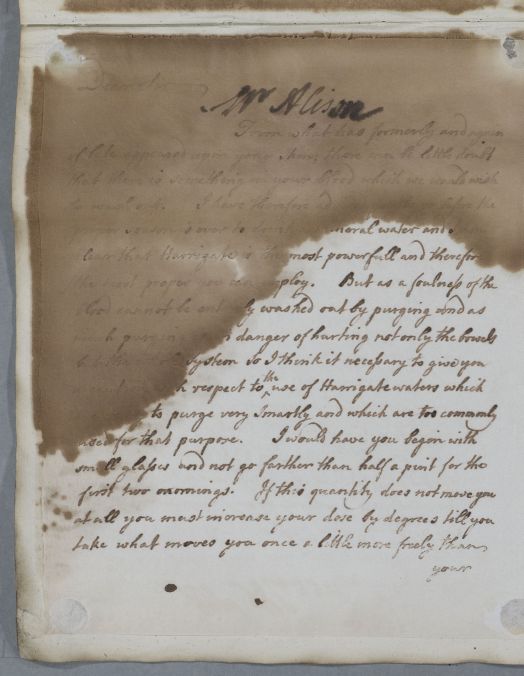 Dear Sir
Mr Alison
From what has formerly and again
of late appeared upon your skin, there can be little doubt
that there is something in your blood which we would wish
to wash out. I have therefore before the
proper season is over to drink mineral water and
clear that Harrigate is the most powerfull and therefor
the most proper you can employ. But as a foulness of the
blood cannot be entirely washed out by purging and as
much purging danger of hurting not only the bowels
but the system so I think it necessary to give you
respect to the use of Harrigate waters which
to purge very smartly and which are too commonly
used for that purpose. I would have you begin with
small glasses and not go farther than half a pint for the
first two mornings. If this quantity does not move you
at all you must increase your dose by degrees till you
take what moves you once a little more freely than
your